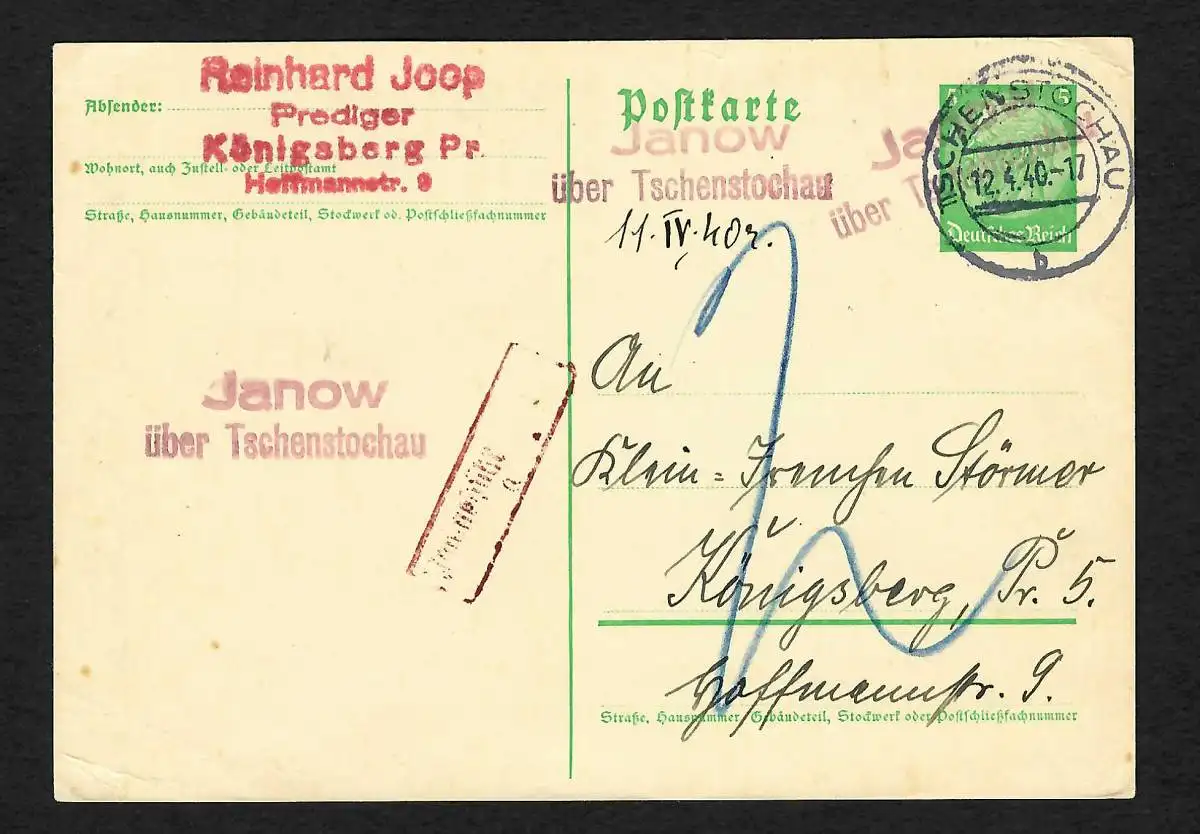 Reinhard Joop
Absender:
Prediger
Königsberg Pr.
Wohnort, auch Zustell- oder Leitpostamt
Hoffmannstr. 9
Straße, Hausnummer, Gebäudeteil, Stockwerk od. Postschließfachnummer
Postkarte
Janow
über Tschenstochau
Ja
über T
TSCHENSTOCHAU
12.4.40.-17
b
Deutsches Reich
11.IV.40r.
Janow
über Tschenstochau
An
Klein-Irenchen Störmer
Königsberg, Pr. 5.
Hoffmannstr. 9.
Straße, Hausnummer, Gebäudeteil, Stockwerk oder Postschließfachnummer